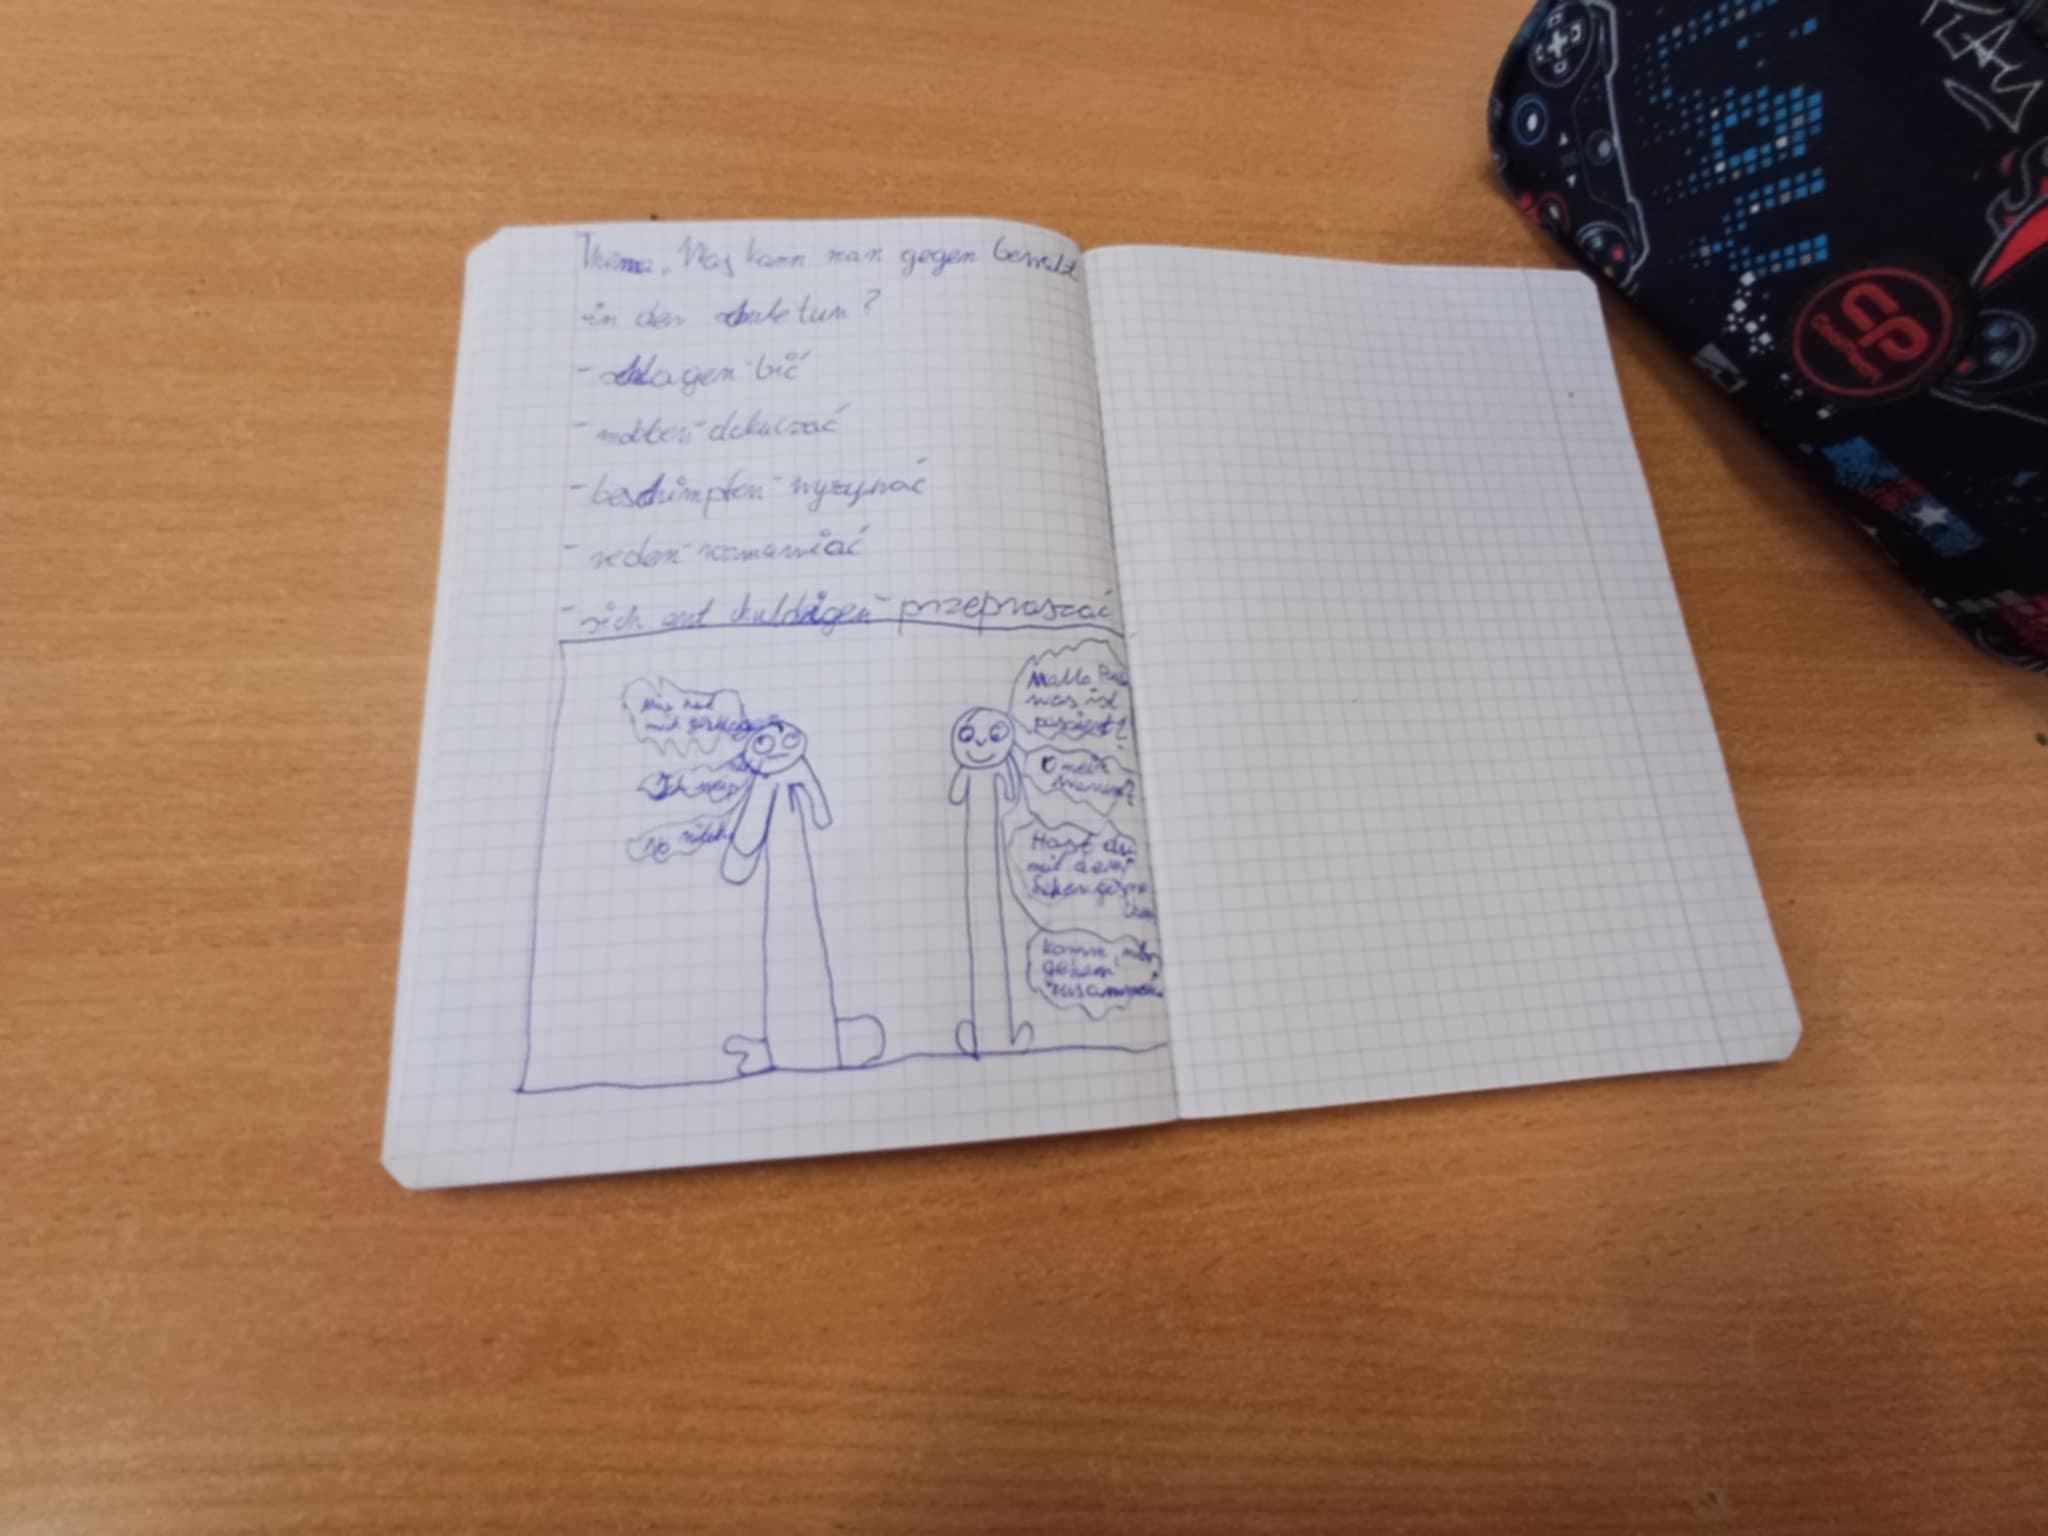 Thema. Was kann man gegen bewalt
in der schule tun?
- schlagen - bić
- mobben - dokuczać
- beschimpfen - wyzywać
- reden - rozmawiać
- sich ent schuldigen - przepraszać
mich
Ich
No
Hallo
was ist
pasiert?
O mein
Hast du
mit dem
komm, wir
gehen
zusammen.
CP
CoolPack